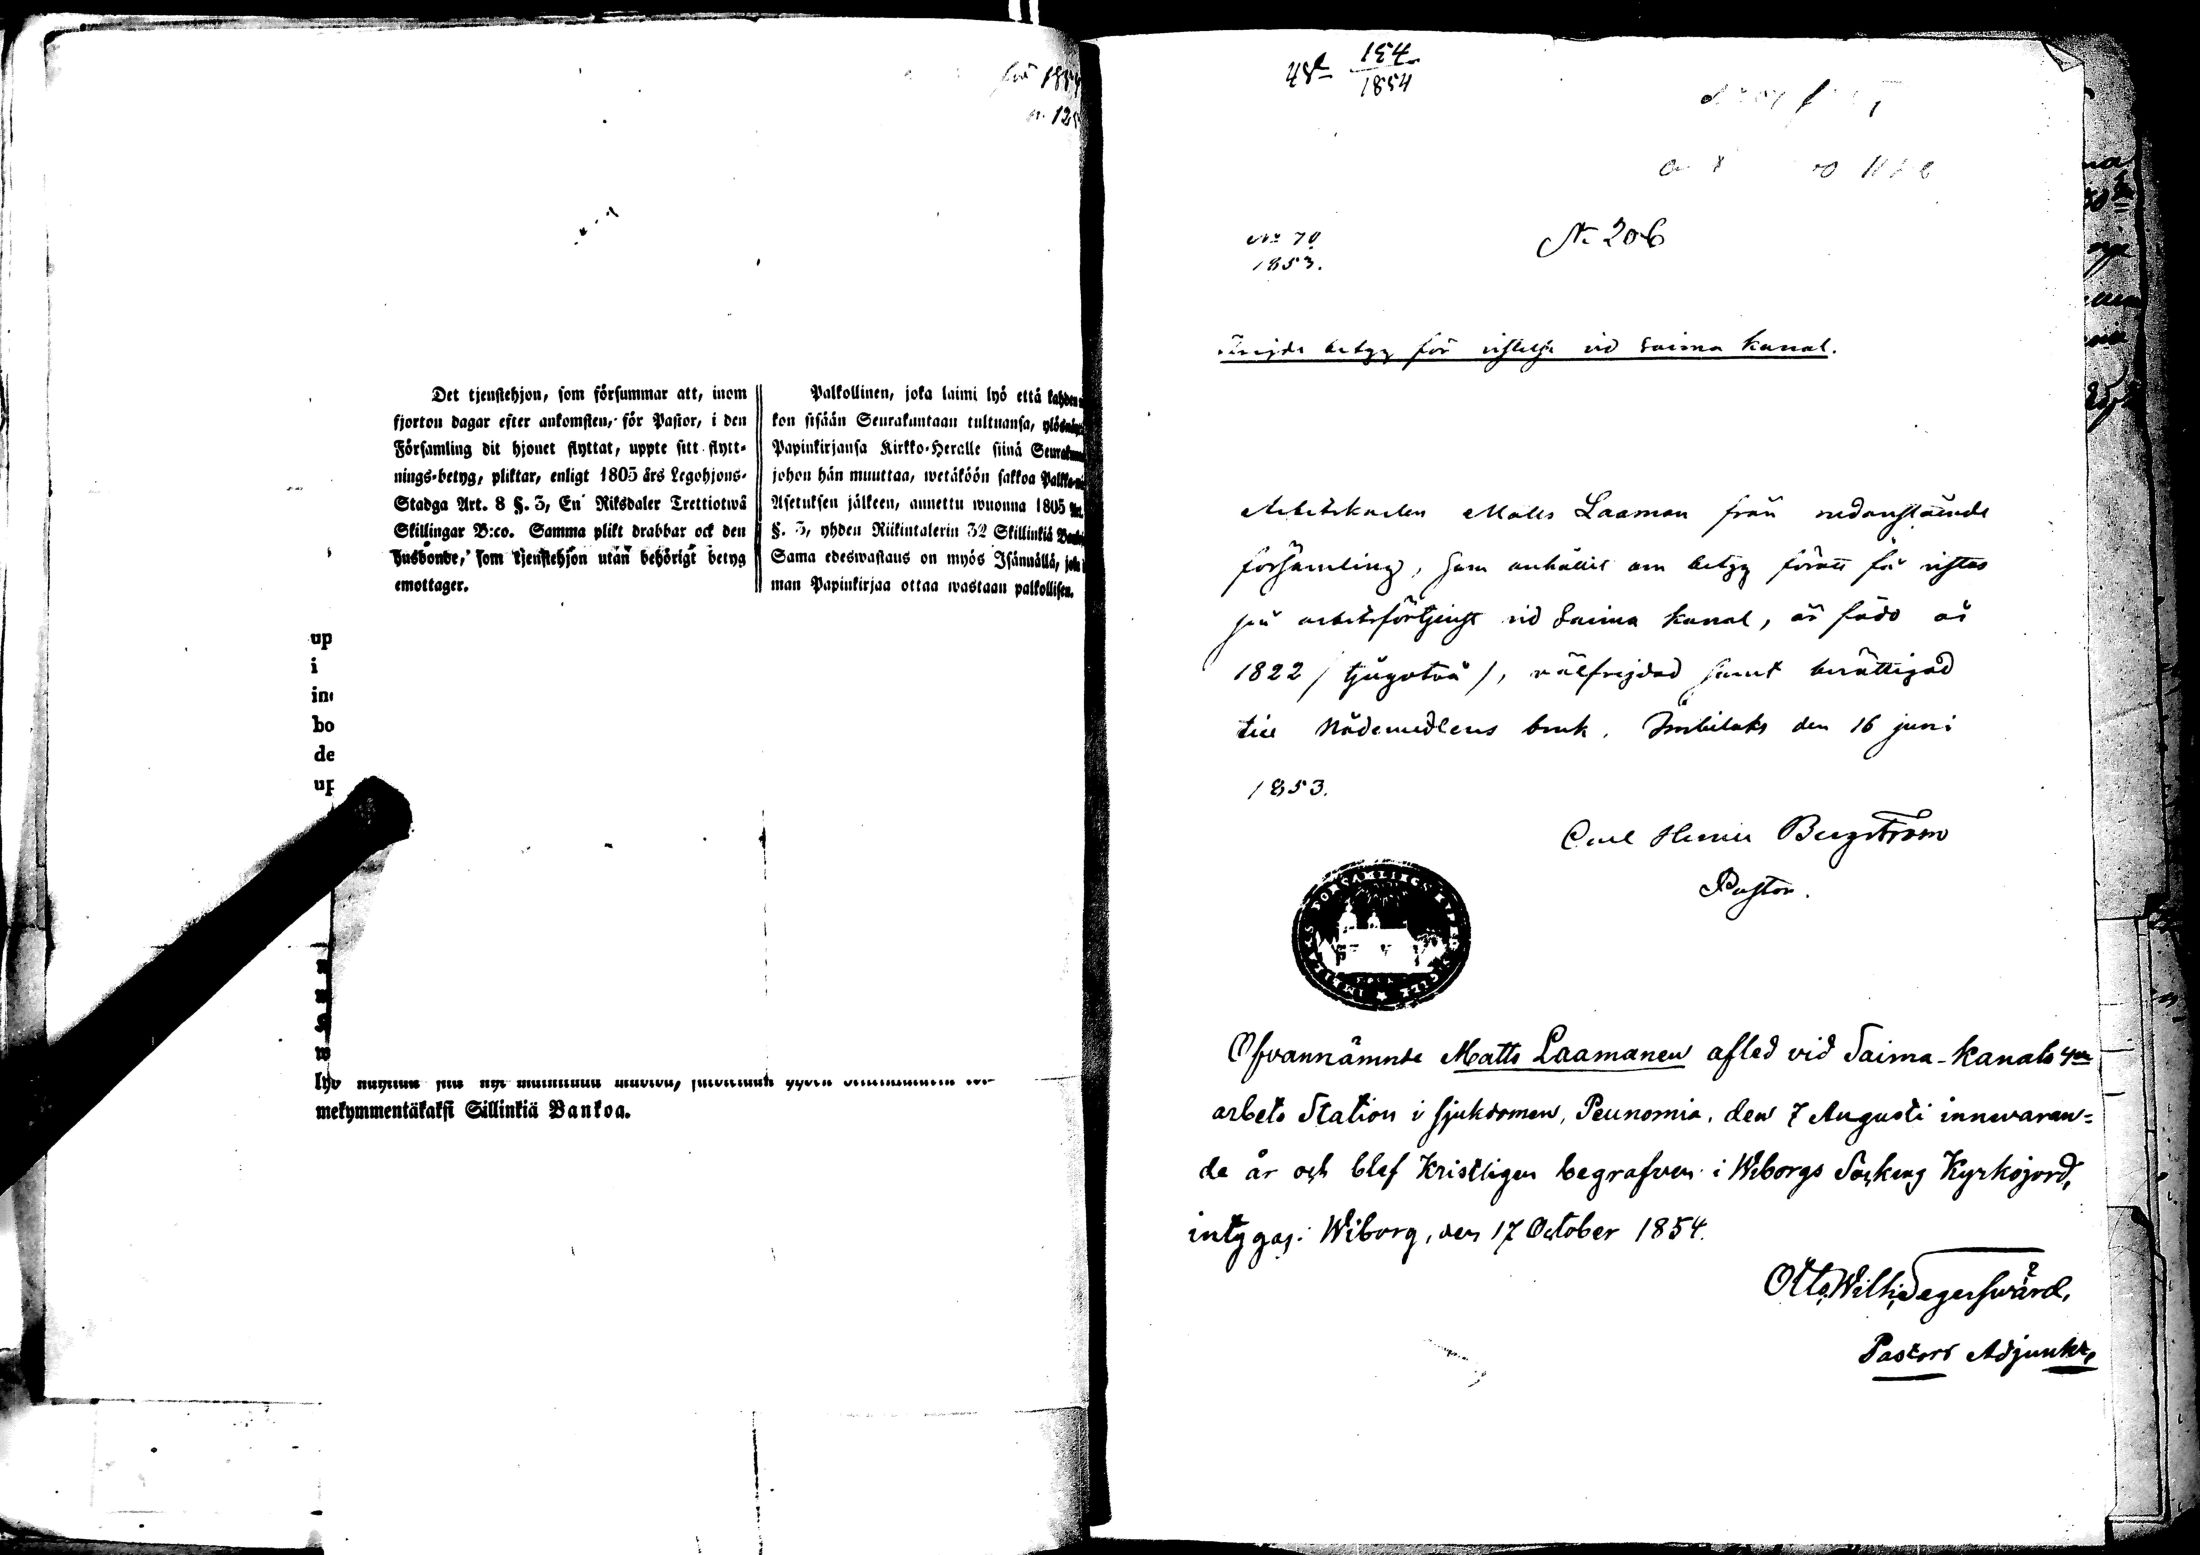 Det tjenstehjon, som försummar att, inom
fjorton dagar efter ankomsten, för Pastor, i den
Församling dit hjonet flyttat, uppte sitt flytt-
nings-betyg, pliktar, enligt 1805 års Legohjons-
Stadga Art. 8 §. 3, En Riksdaler Trettiotwå
Skillingar B:co. Samma plikt drabbar ock den
husbonde, som tjenstehjon utan behörigt betyg
emottager.
Palkollinen, joka laimi lyö että kahden
kon sisään Seurakuntaan tultuansa, ylösnäy
Papinkirjansa Kirkko-Heralle siinä Seurakun
johon hän muuttaa, wetäköön sakkoa Palkka-
Asetuksen jälkeen, annettu wuonna 1805 Art.
§. 3, yhden Riikintalerin 32 Skillinkiä Banko
Sama edeswastaus on myös Isännällä, joka
man Papinkirjaa ottaa wastaan palkollisen.
up
i
in
bo
de
up
mekymmentäkaksi Sillinkiä Bankoa.
154
1854
No 70
1853.
No 206
betyg för vistelse vid Saima Kanal.
Arbetskarlen Matts Laaman från nedanstående
församling, som anhållit om betyg föratt få vistas
på arbetsförtjenst vid Saima Kanal, är född år
1822 / tjugotvå /, välfrejdad samt berättigad
till Nådemedlens bruk. Imbilaks den 16 juni
1853.
Carl Henric Bergström
Pastor.
Ofvannämnde Matts Laamanen afled vid Saima-Kanals 4de
arbets Station i sjukdomen, Peunomia, den 7 Augusti innevaran=
de år och blef Kristligen begrafven i Wiborgs Sockens Kyrkojord,
intygas. Wiborg, den 17 October 1854.
Otto Wilh. Segersvärd,
Pastors Adjunkt,